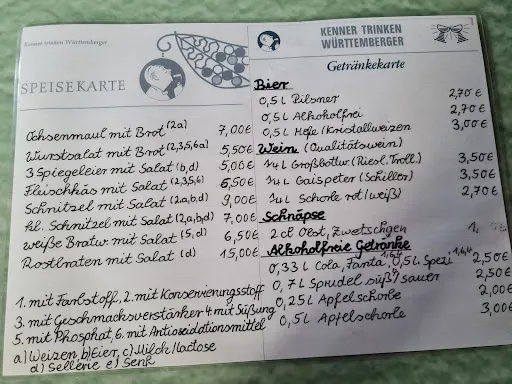 Kenner trinken Württemberger
SPEISEKARTE
Ochsenmaul mit Brot (2a) 7,00€
Wurstsalat mit Brot (2,3,5,6a) 5,50€
3 Spiegeleier mit Salat (b,d) 5,00€
Fleischkäs mit Salat (2,3,5,6) 6,50€
Schnitzel mit Salat (2,a,b,d) 9,00€
kl. Schnitzel mit Salat (2,a,b,d) 7,00€
weiße Bratw. mit Salat (5,d) 6,50€
Rostbraten mit Salat (d) 15,00€
1. mit Farbstoff, 2. mit Konservierungsstoff
3. mit Geschmacksverstärker 4. mit Süßung
5. mit Phosphat, 6. mit Antioxidationsmittel
a) Weizen, b) Eier, c) Milch/lactose
d) Sellerie e) Senf
KENNER TRINKEN
WÜRTTEMBERGER
Getränkekarte
Bier
0,5 L Pilsner 2,70€
0,5 L Alkoholfrei 2,70€
0,5 L Hefe/Kristallweizen 3,00€
Wein (Qualitätswein)
1/4 L Großbottw. (Riesl. Troll.) 3,50€
1/4 L Gaispeter (Schiller) 3,50€
1/4 L Schorle rot/weiß) 2,70€
Schnäpse
2 cl Obst, Zwetschgen
Alkoholfreie Getränke
0,33 L Cola, Fanta 1,6,4, 0,5 L Spezi 1,6,4 2,50€
0,7 L Sprudel süß/sauer 2,50€
0,25 L Apfelschorle 2,00€
0,5 L Apfelschorle 3,00€